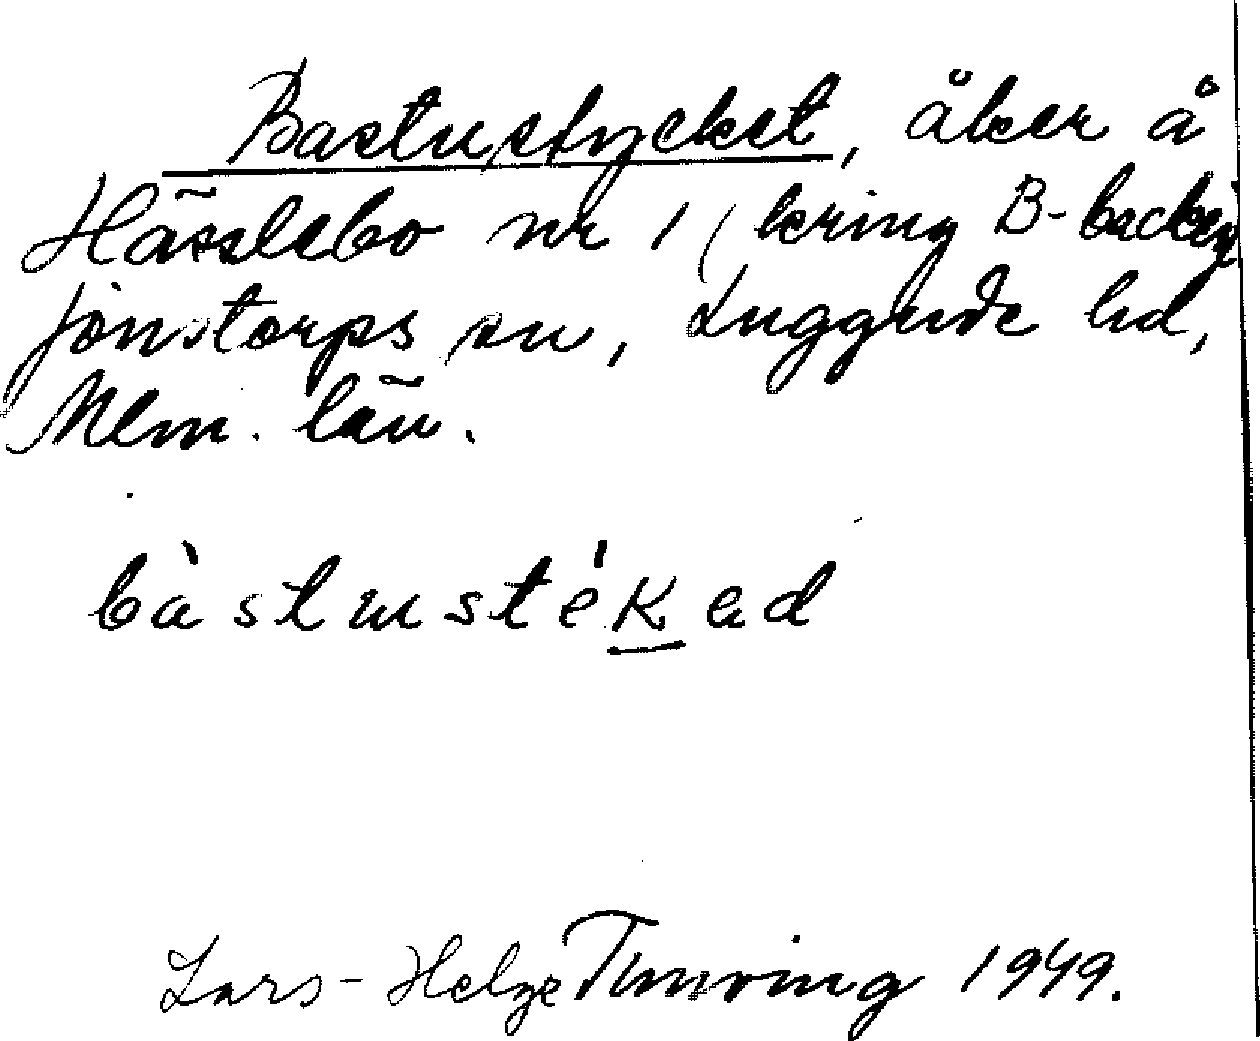 Bastustycket, åker å
Hässlebo nr 1 (kring B-backen)
Jonstorps sn, Luggude hd,
Mlm. län.
bàstustékad
Lars-Helge Thurving 1949.